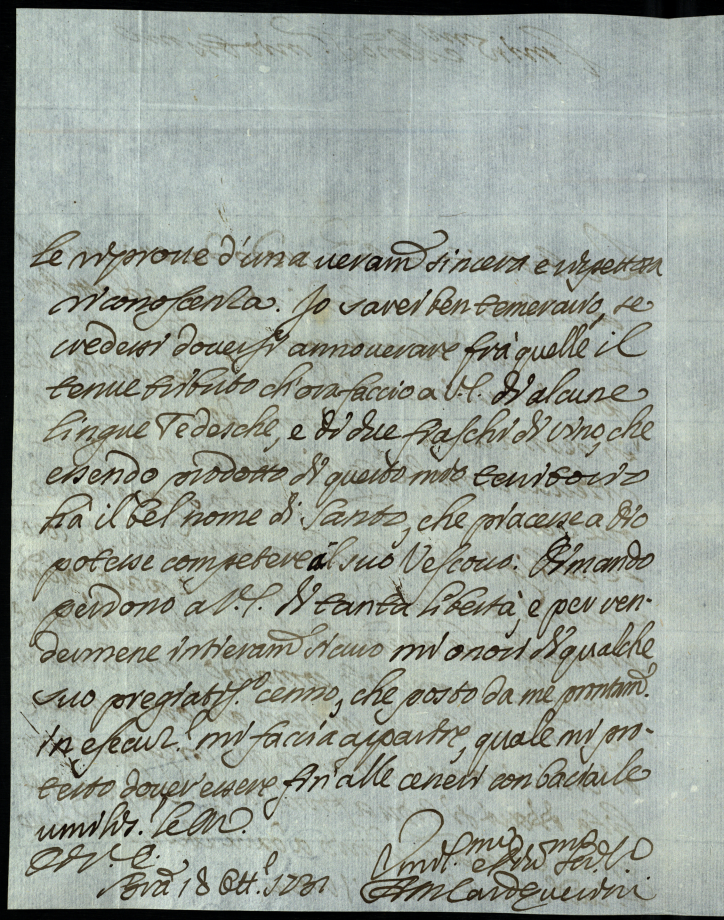 le riprove d'una veram.te sincera e rispettosa
riconoscenza. Io sarei ben temerario, se
credessi doversi annoverare frà quelle il
tenue tributo ch'ora faccio a V.S. di alcune
lingue Tedesche, e di due fiaschi di vino, che
essendo prodotto di questo mio territorio
hà il bel nome di Santo, che piacesse a Dio
potesse competere al suo Vescovo: Dimando
perdono a V.S. di tanta libertà, e per ren-
dermene intieram.te sicuro mi onori di qualche
suo pregiatis.o cenno, che posto da me prontam.
in esecuz. mi faccia apparire, quale mi pro-
testo dover essere fin alle ceneri con baciarle
umilis. le m.
Di V. E.
Bra 18 Ott. 1731
Umil.mo e serv.
A M Card Querini